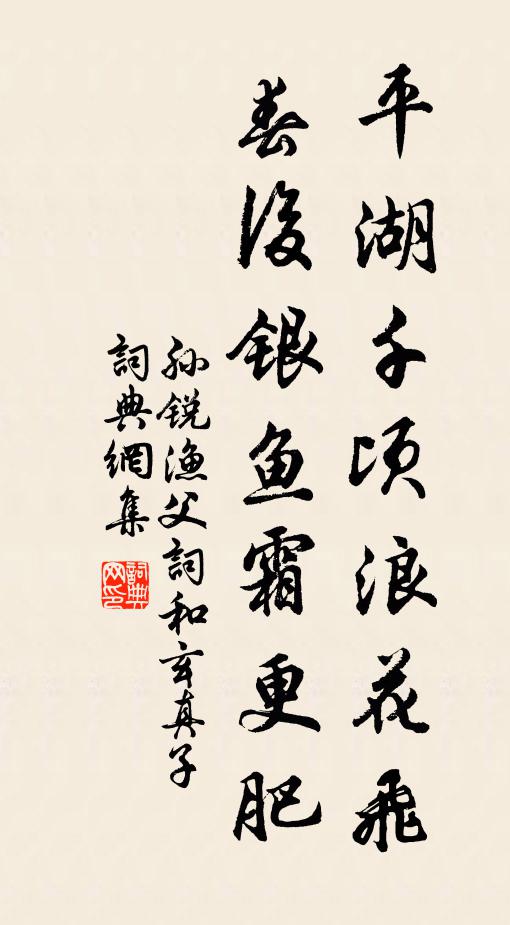 平湖千顷浪花飛
春後银鱼霜更肥
孙锐漁父詞和玄真子
詞典網集
詞典网印